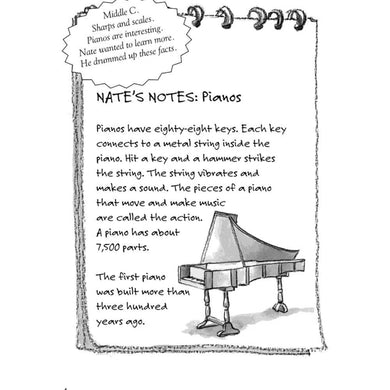 Middle C.
Sharps and scales.
Pianos are interesting.
Nate wanted to learn more.
He drummed up these facts.
NATE'S NOTES: Pianos
Pianos have eighty-eight keys. Each key
connects to a metal string inside the
piano. Hit a key and a hammer strikes
the string. The string vibrates and
makes a sound. The pieces of a piano
that move and make music
are called the action.
A piano has about
7,500 parts.
The first piano
was built more than
three hundred
years ago.